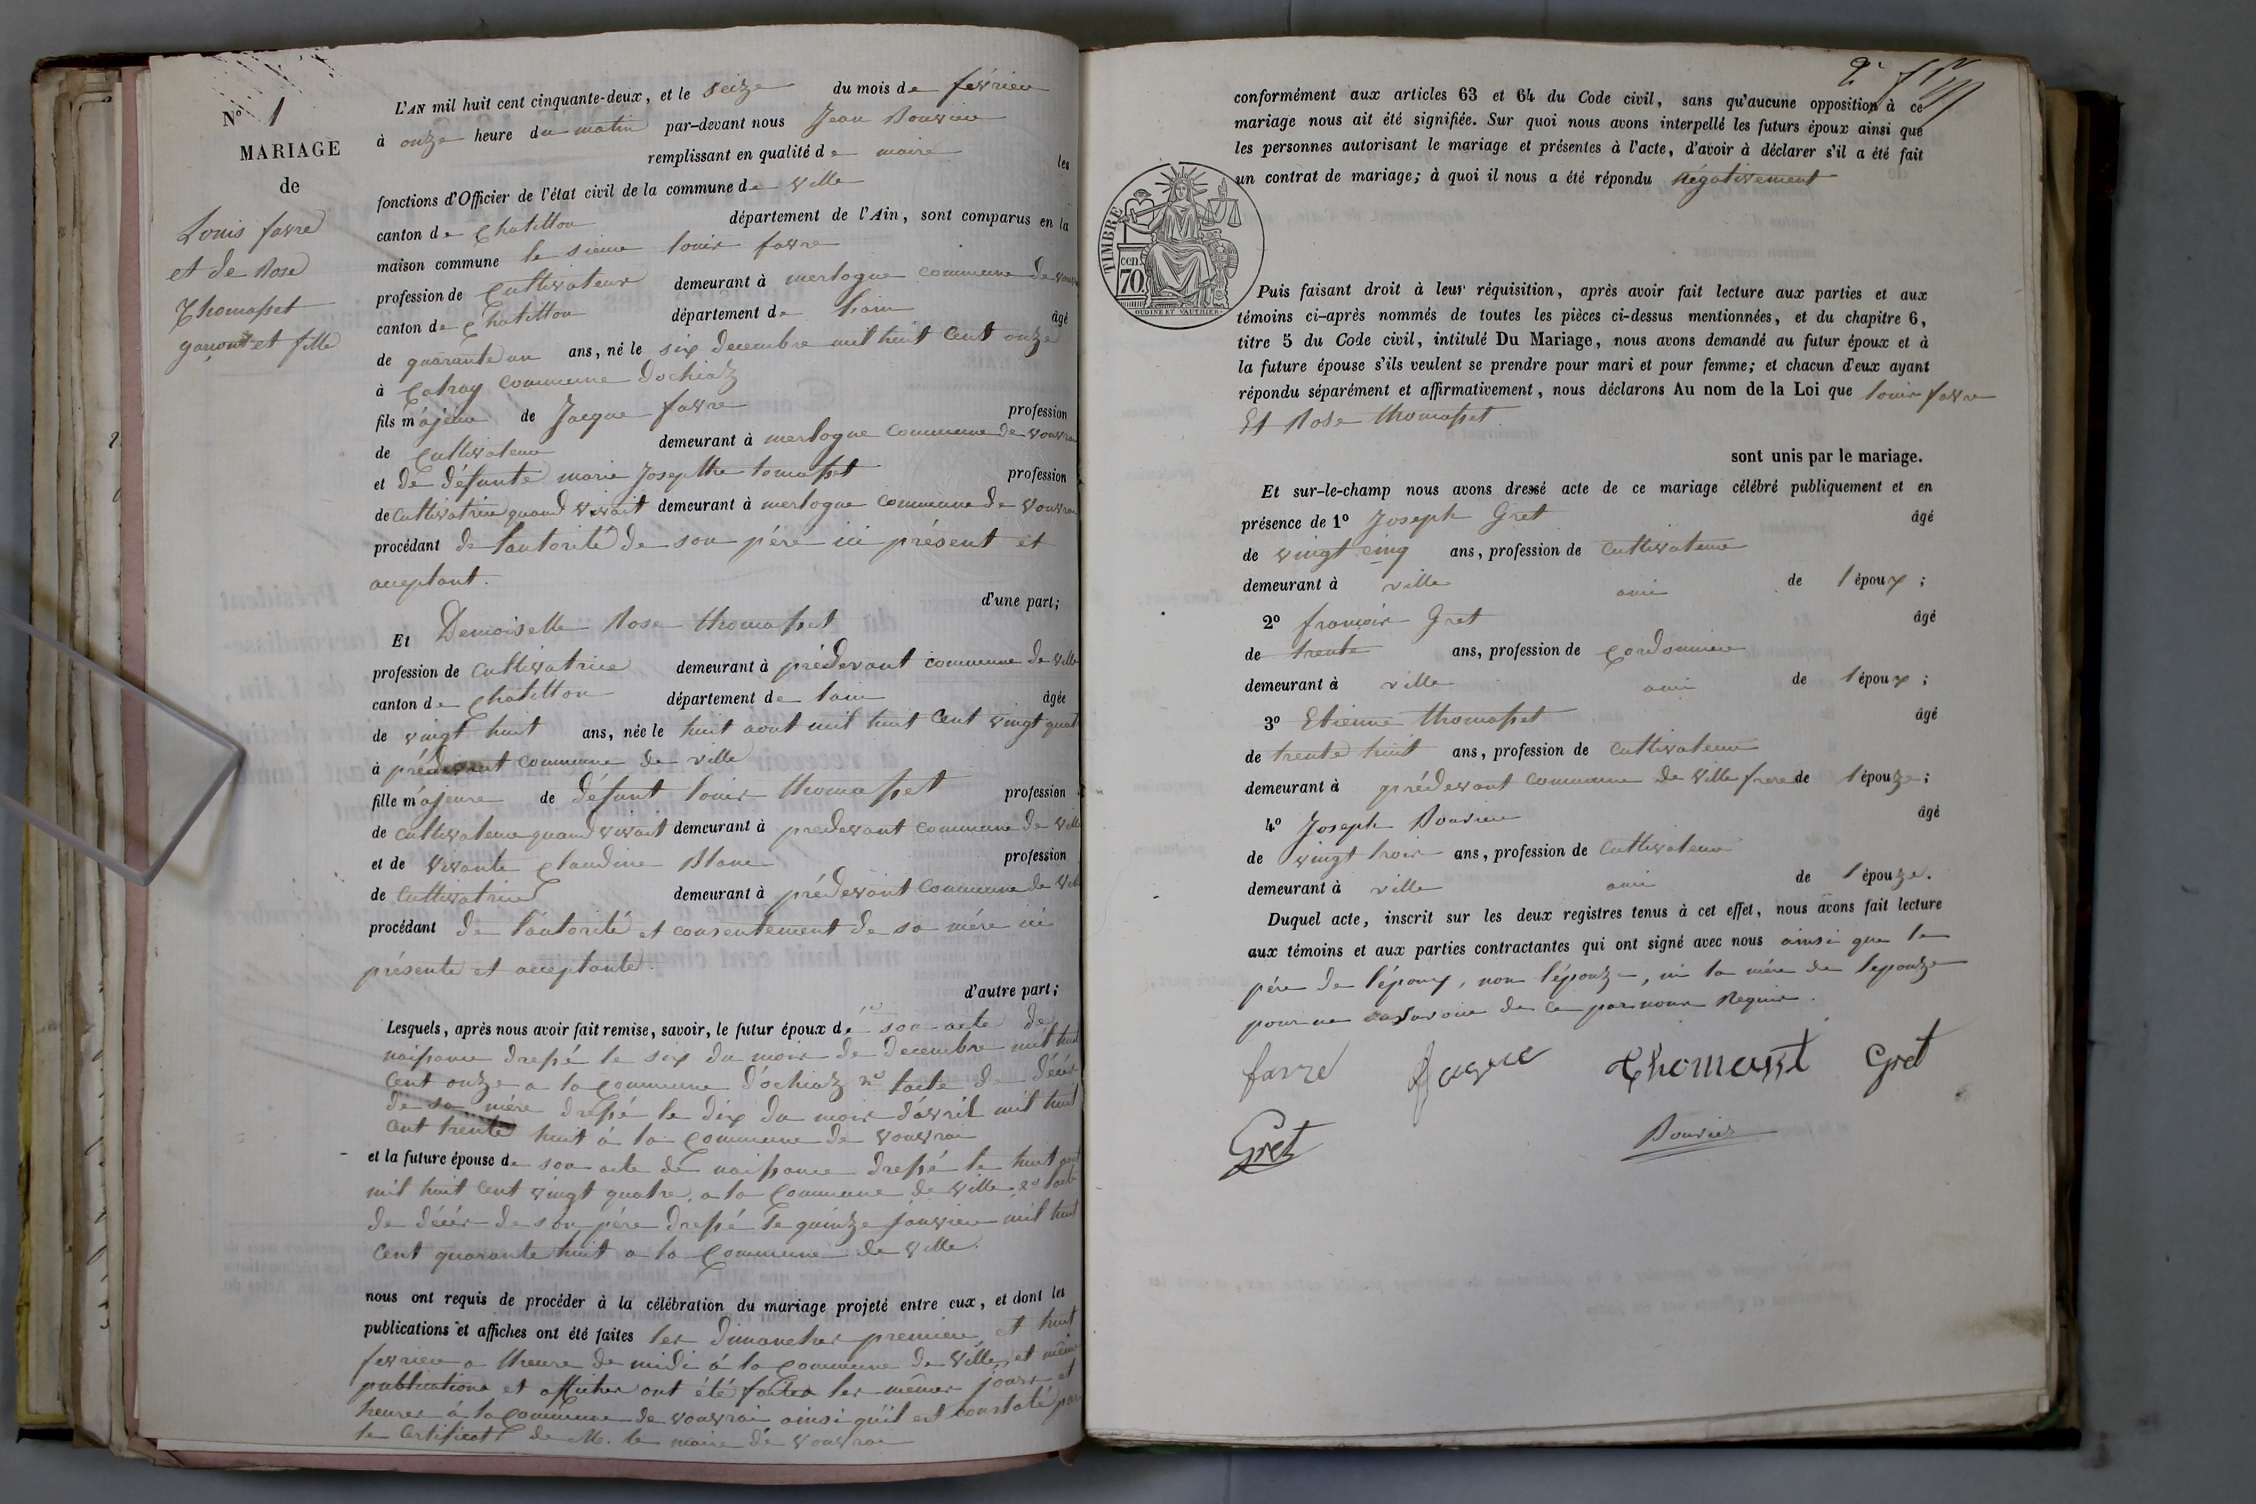 N° 1
MARIAGE
de
Louis favre
et de Rose
Thomasset
garçon et fille
L'AN mil huit cent cinquante-deux, et le seize du mois de fevrier
à onze heure du matin par-devant nous Jean Bouvier
remplissant en qualité de maire les
fonctions d'Officier de l'état civil de la commune de ville
canton de Chatillon département de l'Ain, sont comparus en la
maison commune le sieur louis favre
profession de Cultivateur demeurant à merlogne commune de
canton de Chatillon département de lain âgé
de quarante un ans, né le six decembre mil huit Cent onze
à Catray Commune dochiatz
fils majeur de Jacque favre profession
de Cultivateur demeurant à merlogne Commune de vouvrai
et de défunte marie Josephte tomasset profession
de Cultivatrice quand vivait demeurant à merlogne Commune de vouvrai
procédant de lautorité de son pére ici présent et
acceptant.
d'une part;
Et Demoiselle Rose thomasset
profession de cultivatrice demeurant à prédevant commune de ville
canton de Chatillon département de lain âgée
de vingt huit ans, née le huit aout mil huit Cent vingt quat
à prédevant Commune de ville
fille majeure de défunt louis thomasset profession
de cultivateur quand vivait demeurant à prédevant commune de ville
et de vivante Claudine Blanc profession
de Cultivatrice demeurant à prédevant Commune de ville
procédant de lautorité et consentement de sa mére ici
présente et acceptante.
d'autre part;
Lesquels, après nous avoir fait remise, savoir, le futur époux de son acte de
naissance dressé le six du mois de decembre mil huit
Cent onze a la Commune d'ochiatz lacte de décés
de sa mére dressé le dix du mois d'avril mil huit
cent trente huit à la Commune de vouvrai
et la future épouse de son acte de naissance dressé le huit aout
mil huit Cent vingt quatre, a la Commune de ville 2° lacte
de décés de son pére dressé le quinze janvier mil huit
Cent quarante huit a la Commune de ville.
nous ont requis de procéder à la célébration du mariage projeté entre eux, et dont les
publications et affiches ont été faites les dimanches premier et huit
fevrier a lheure de midi à la Commune de Ville, et même
publications et affiches ont été faites les mêmes jours et
heures à la Commune de vouvrai ainsi qu'il est constaté par
le Certificat de M. le maire de vouvrai
conformément aux articles 63 et 64 du Code civil, sans qu'aucune opposition à ce
mariage nous ait été signifiée. Sur quoi nous avons interpellé les futurs époux ainsi que
les personnes autorisant le mariage et présentes à l'acte, d'avoir à déclarer s'il a été fait
un contrat de mariage; à quoi il nous a été répondu négativement
TIMBRE
cen.
70
OUDINÉ ET VAUTHIER.
Puis faisant droit à leur réquisition, après avoir fait lecture aux parties et aux
témoins ci-après nommés de toutes les pièces ci-dessus mentionnées, et du chapitre 6,
titre 5 du Code civil, intitulé Du Mariage, nous avons demandé au futur époux et à
la future épouse s'ils veulent se prendre pour mari et pour femme; et chacun d'eux ayant
répondu séparément et affirmativement, nous déclarons Au nom de la Loi que louis favre
Et Rose thomasset
sont unis par le mariage.
Et sur-le-champ nous avons dressé acte de ce mariage célébré publiquement et en
présence de 1° Joseph Gret âgé
de vingt cinq ans, profession de cultivateur
demeurant à ville ami de l époux;
2° francois Gret âgé
de trente ans, profession de Cordonnier
demeurant à ville ami de l époux;
3° Etienne thomasset âgé
de trente huit ans, profession de cultivateur
demeurant à prédevant commune de Ville frere de l épouze;
4° Joseph Bouvier âgé
de vingt trois ans, profession de Cultivateur
demeurant à ville ami de l épouze.
Duquel acte, inscrit sur les deux registres tenus à cet effet, nous avons fait lecture
aux témoins et aux parties contractantes qui ont signé avec nous ainsi que le
pére de lépoux, non lépouze, ni la mére de lepouze
pour ne savoir de ce par nous Requis.
favre Jaque Thomasset Gret
Gret Bouvier